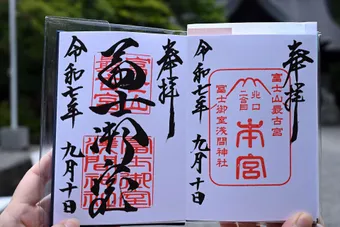 奉拝
富士山
最古宮
富士御室
令和七年 九月十日
奉拝
富士山最古宮
北口
二合目
本宮
冨士御室浅間神社
令和七年 九月十日